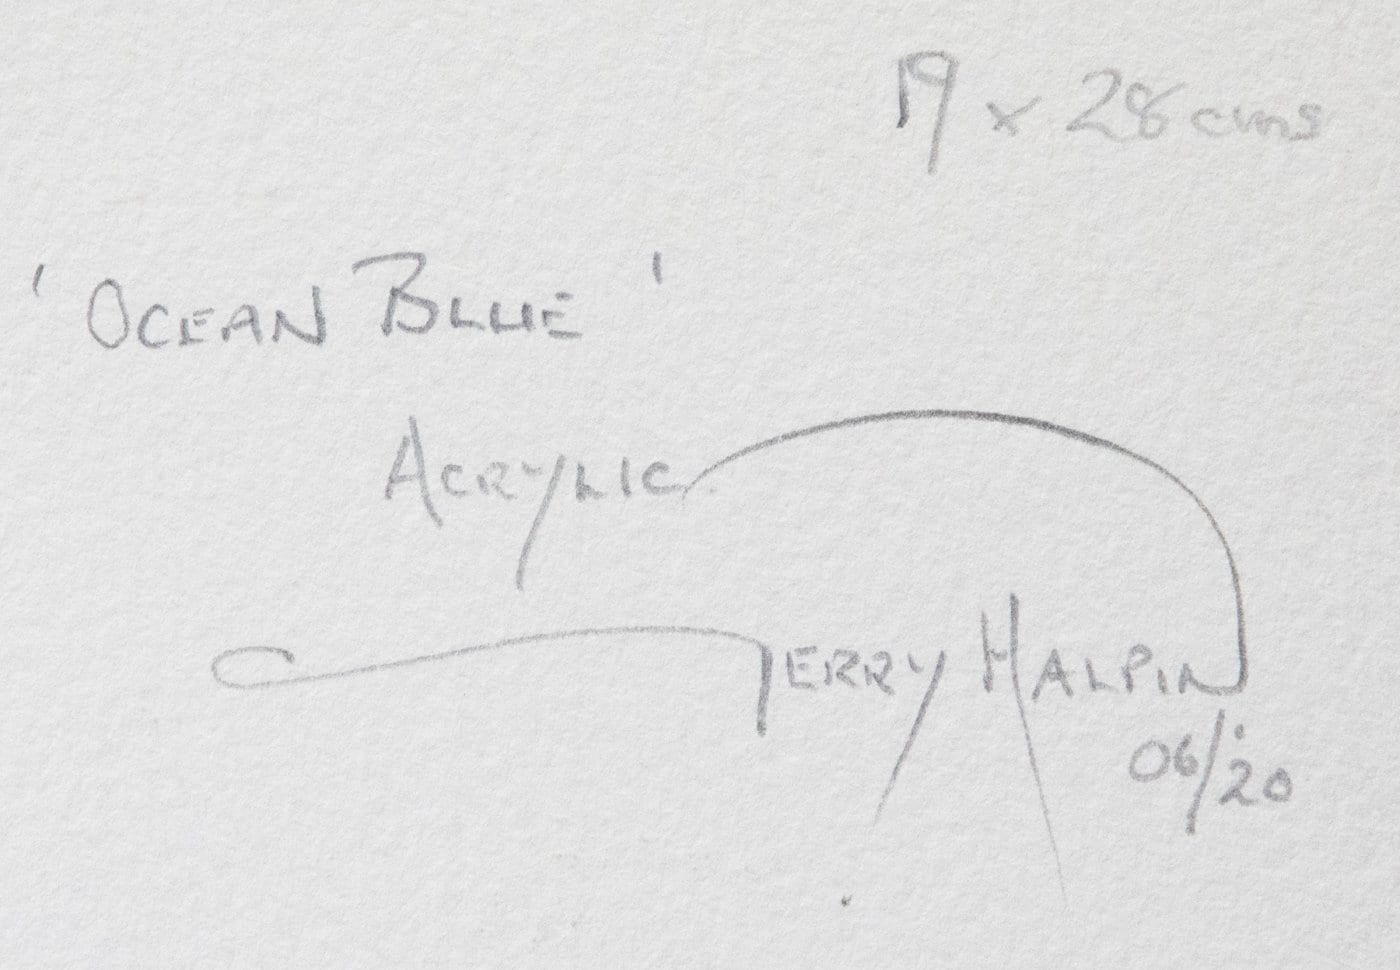 19 x 28 cms
'OCEAN BLUE'
ACRYLIC
TERRY HALPIN
06/'20